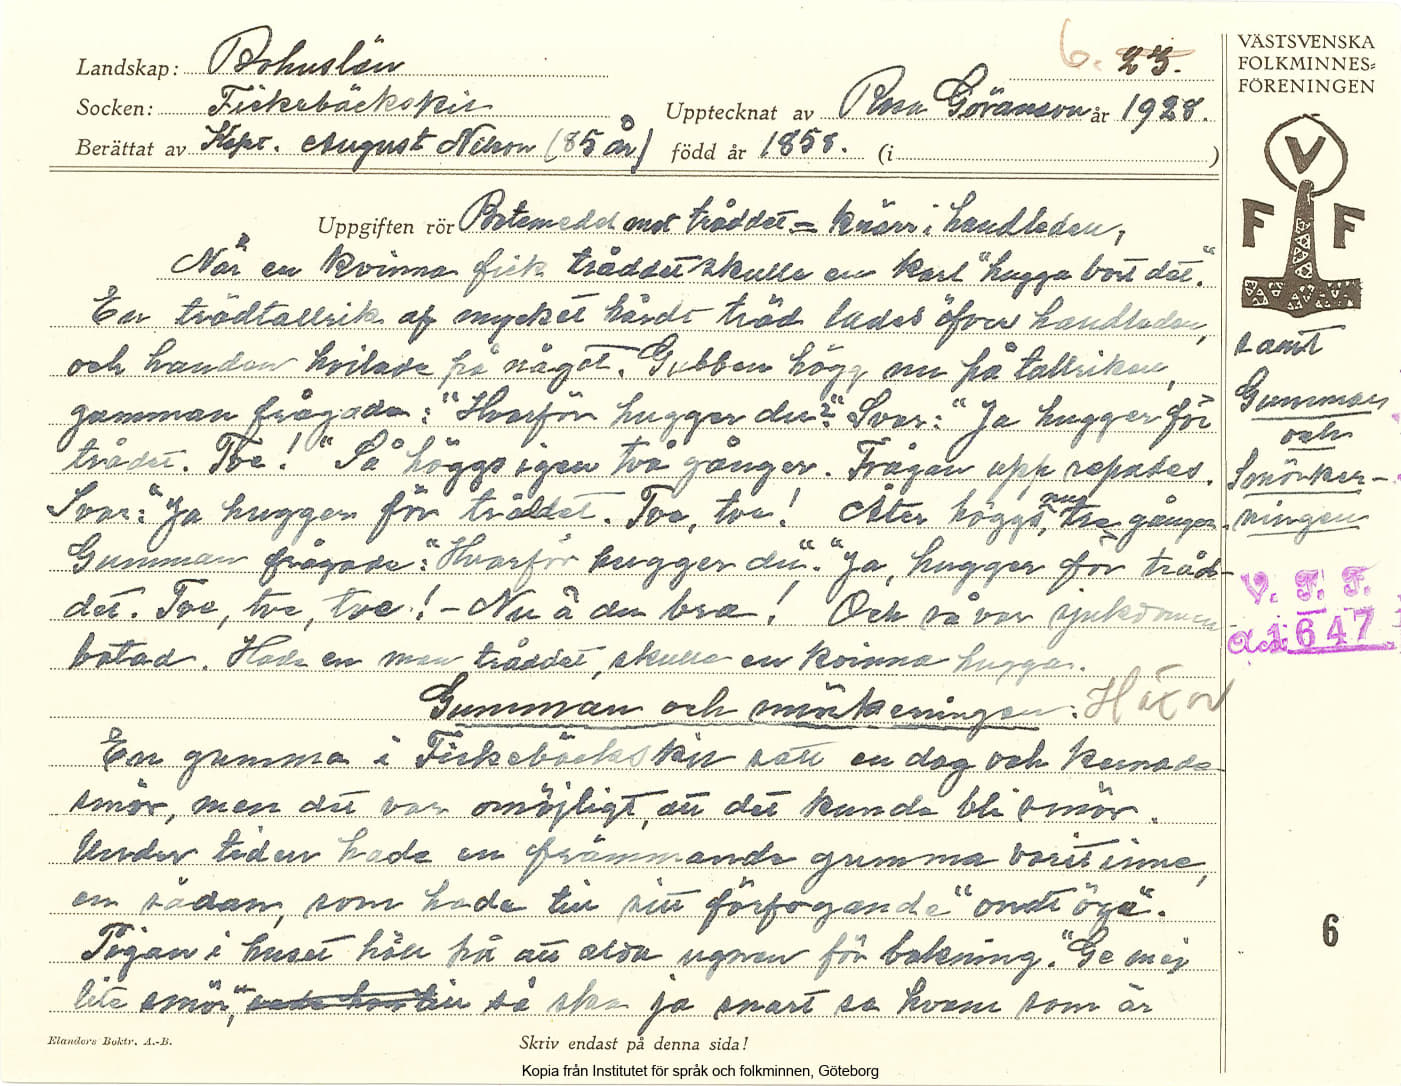 Landskap: Bohuslän
Socken: Fiskebäckskil
Berättat av Kapt. August Nilson (85 år)
6. 23.
Upptecknat av Rosa Göranson år 1928.
född år 1858. (i )
VÄSTSVENSKA
FOLKMINNES=
FÖRENINGEN
V
F F
Uppgiften rör Botemedel mot tråddet = knarr i handleden,
När en kvinna fick tråddet skulle en karl "hugga bort det".
En trädtallrik af mycket hårdt träd lades öfver handleden,
och handen hvilade på något. Gubben högg nu på tallriken,
gumman frågade: "Hvarför hugger du?" Svar: "Ja hugger för
trådet. Tve!" Så höggs igen två gånger. Frågan upprepades.
Svar: "Ja hugger för tråddet. Tve, tve! Åter höggs, nu tre gånger.
Gumman frågade: "Hvarför hugger du". "Ja, hugger för tråd-
det. Tve, tve, tve! - Nu ä den bra! Och så var sjukdomen
botad. Hade en man tråddet, skulle en kvinna hugga.
Gumman och smörkerningen. Häxor
En gumma i Fiskebäckskil satt en dag och kernade
smör, men det var omöjligt, att det kunde bli smör.
Under tiden hade en främmande gumma varit inne,
en sådan, som hade till sitt förfogande "ondt öga".
Pigan i huset höll på att elda ugnen för bakning. "Ge mej
lite smör", så ska ja snart se hvem som är
samt
Gumman
och
Smörker-
ningen
V. F. F.
Acc. 1647
6
Elanders Boktr. A.-B.
Skriv endast på denna sida!
Kopia från Institutet för språk och folkminnen, Göteborg